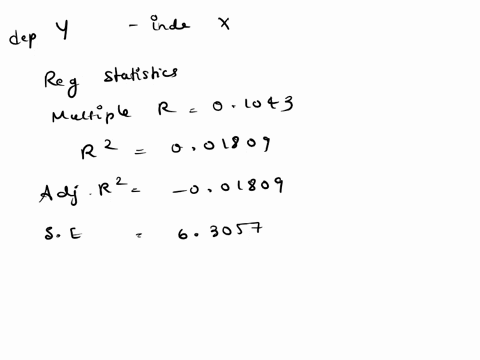 dep Y - inde X
Reg statistics
Multiple R = 0.1043
R² = 0.01809
Adj. R² = -0.01809
S.E = 6.3057